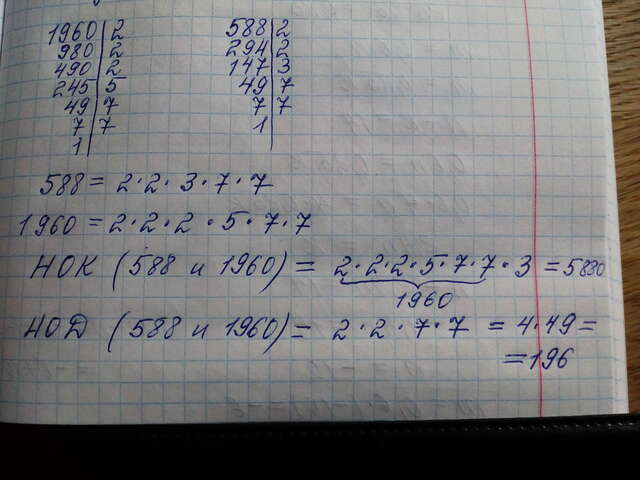 1960 | 2
980 | 2
490 | 2
245 | 5
49 | 7
7 | 7
1 |
588 | 2
294 | 2
147 | 3
49 | 7
7 | 7
1 |
588 = 2·2·3·7·7
1960 = 2·2·2·5·7·7
НОК (588 и 1960) = 2·2·2·5·7·7·3 = 5880
1960
НОД (588 и 1960) = 2·2·7·7 = 4·49 =
= 196